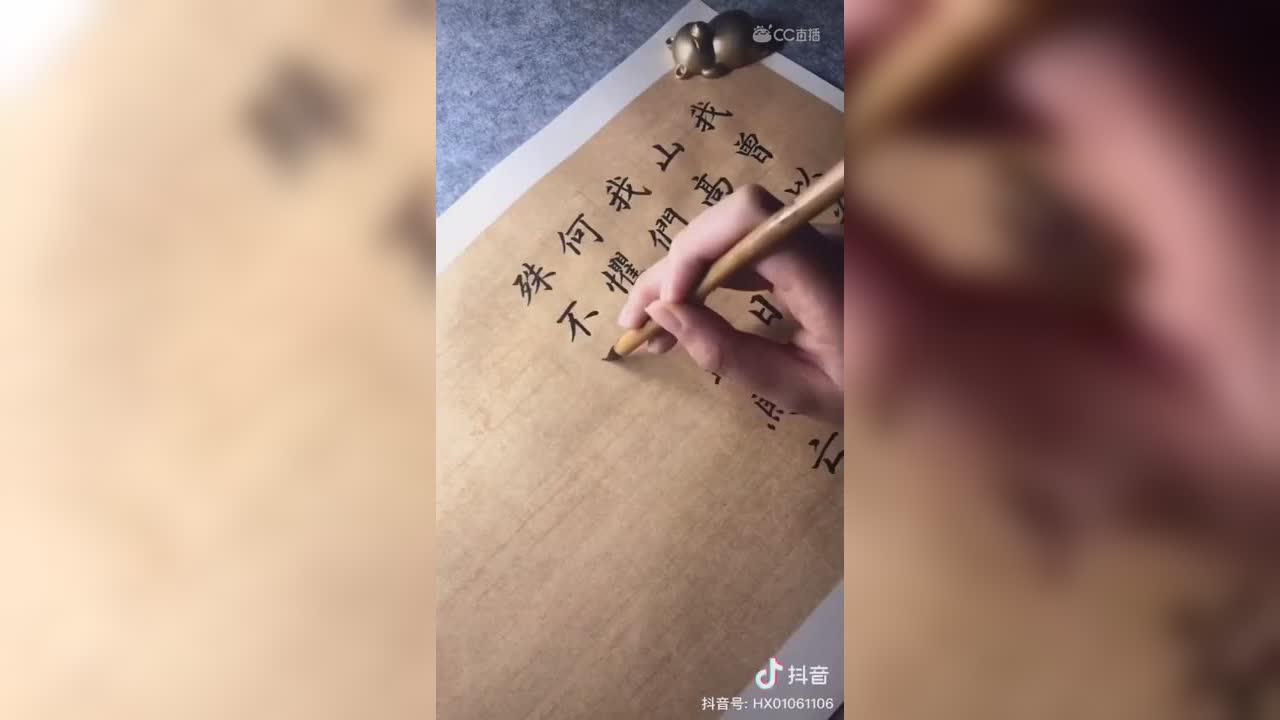 我曾以
山高
我們 日
何懼
殊不
CC直播
抖音
抖音号: HX01061106